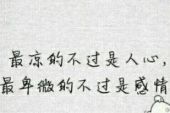 最凉的不过是人心，
最卑微的不过是感情